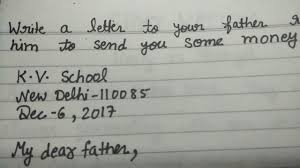 Write a letter to your father
him to send you some money
K.V. School
New Delhi-110085
Dec-6, 2017
My dear father,